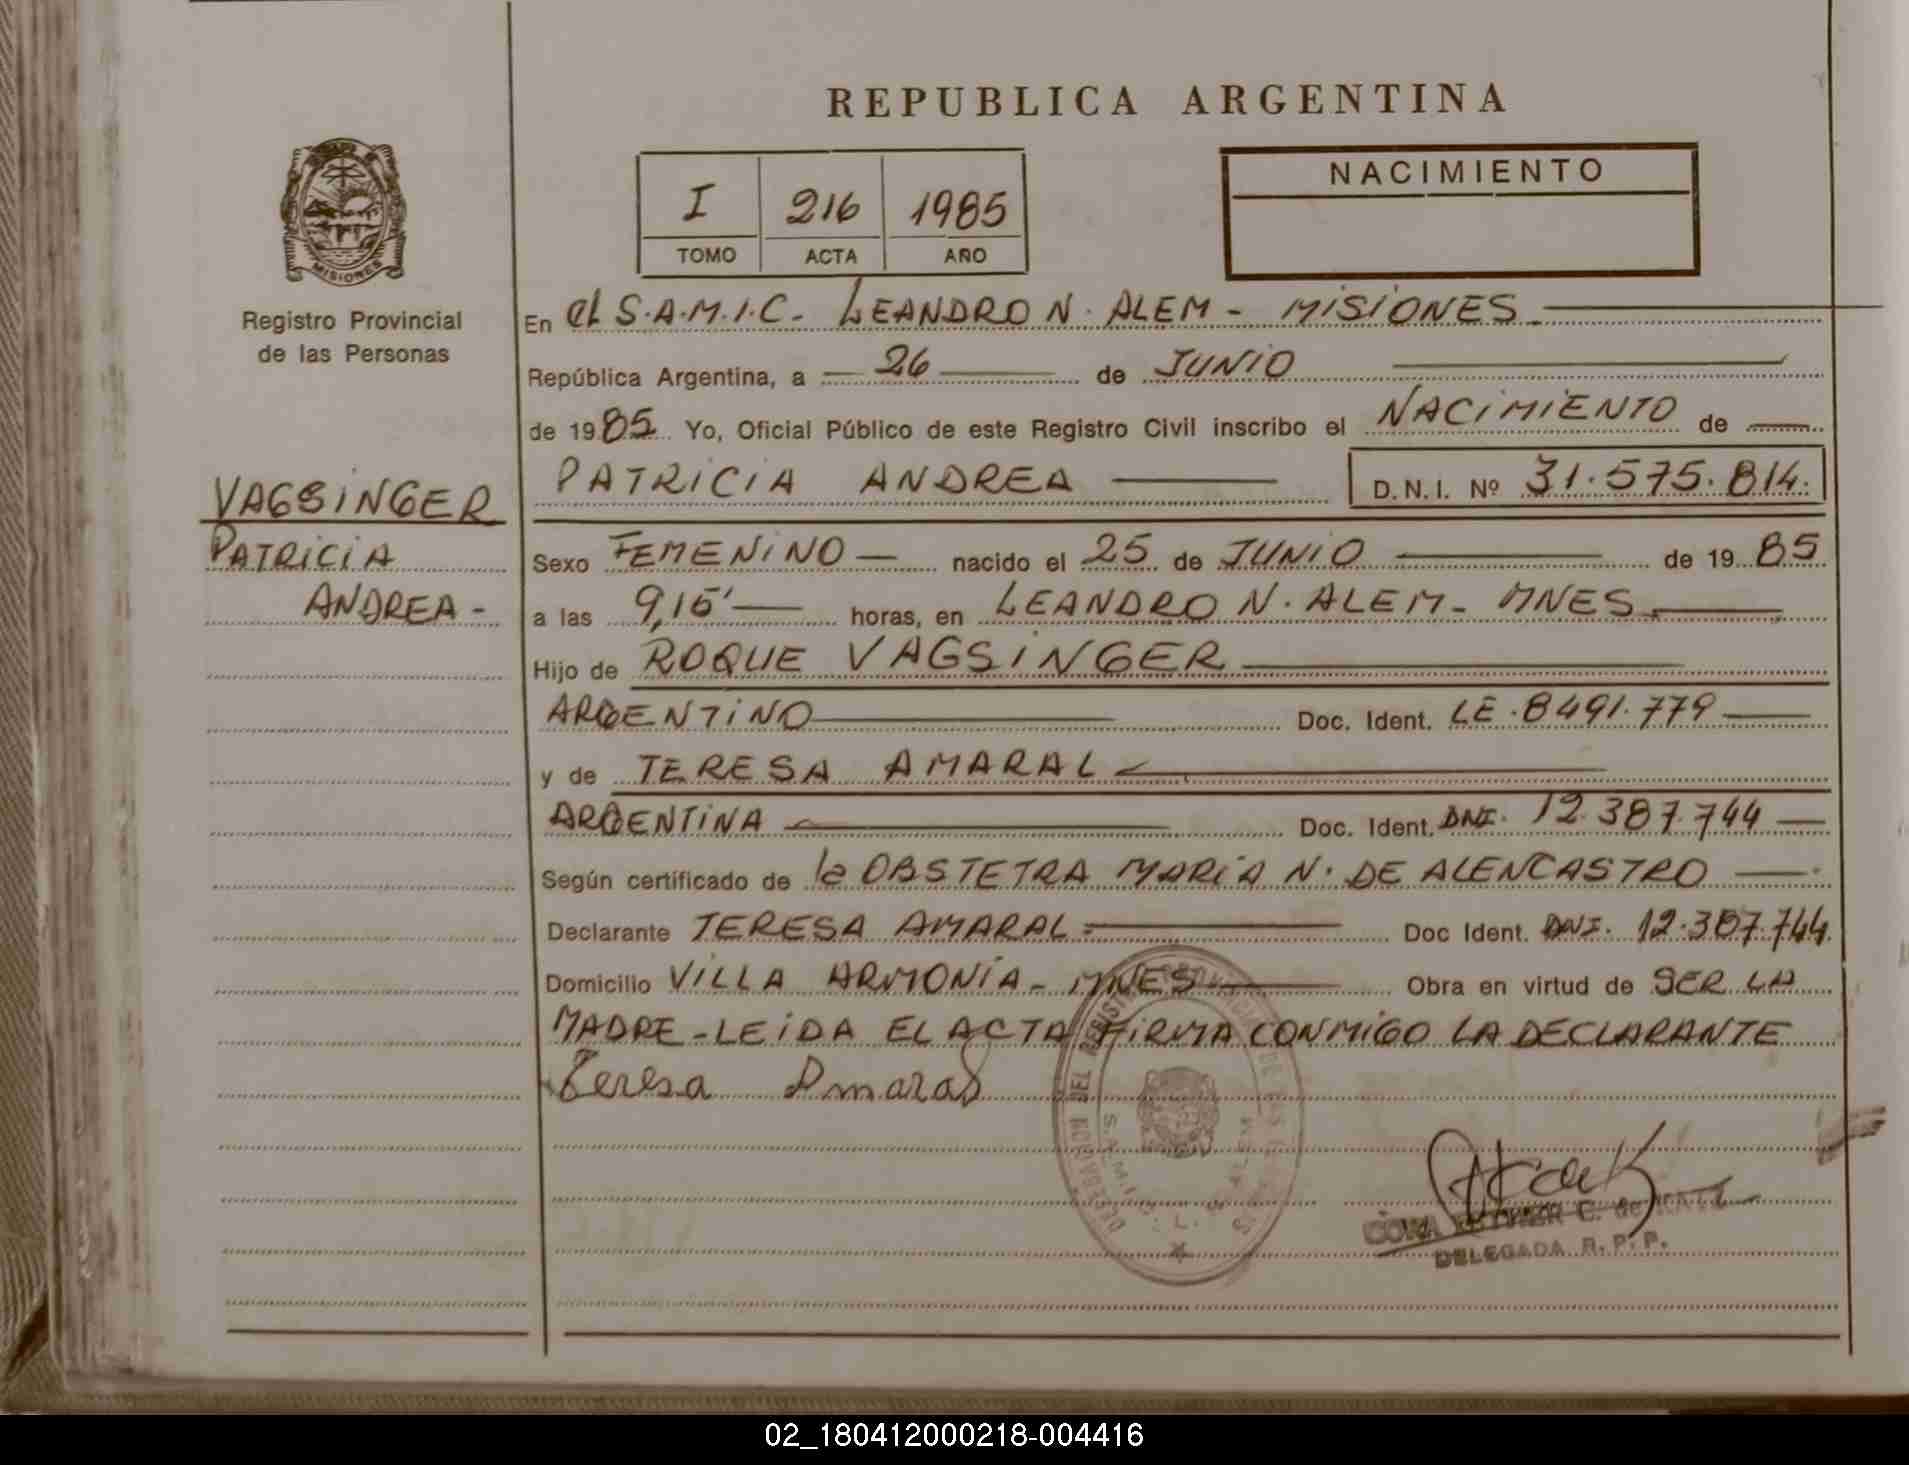 REPUBLICA ARGENTINA
MISIONES
Registro Provincial
de las Personas
I 216 1985
TOMO ACTA AÑO
NACIMIENTO
En el S.A.M.I.C. LEANDRO N. ALEM - MISIONES
República Argentina, a 26 de JUNIO
de 1985 Yo, Oficial Público de este Registro Civil inscribo el NACIMIENTO de
PATRICIA ANDREA D.N.I. Nº 31.575.814.
VAGSINGER
PATRICIA
ANDREA -
Sexo FEMENINO nacido el 25 de JUNIO de 1985
a las 9,15' horas, en LEANDRO N. ALEM - MNES
Hijo de ROQUE VAGSINGER
ARGENTINO Doc. Ident. LE. 8491.779
y de TERESA AMARAL
ARGENTINA Doc. Ident. DNI. 12.387.744
Según certificado de la OBSTETRA MARIA N. DE ALENCASTRO
Declarante TERESA AMARAL Doc Ident. DNI. 12.387.744
Domicilio VILLA ARMONIA - MNES Obra en virtud de SER LA
MADRE - LEIDA EL ACTA FIRMA CONMIGO LA DECLARANTE
Teresa Amaral
DELEGADA R.P.P.
02_180412000218-004416